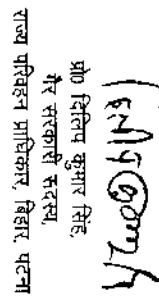 प्रो० दिलिप कुमार सिंह,
गैर सरकारी सदस्य,
राज्य परिवहन प्राधिकार, बिहार, पटना